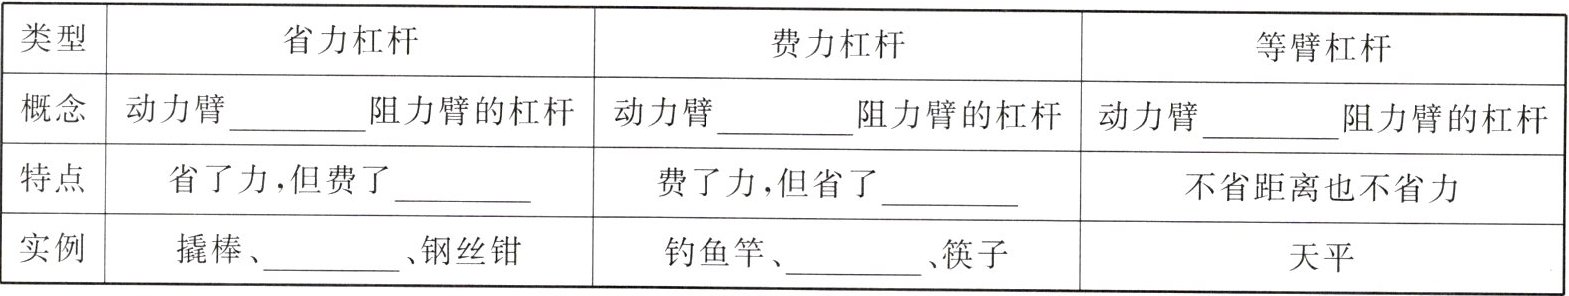 类型 省力杠杆 费力杠杆 等臂杠杆
概念 动力臂________阻力臂的杠杆 动力臂________阻力臂的杠杆 动力臂________阻力臂的杠杆
特点 省了力,但费了________ 费了力,但省了________ 不省距离也不省力
实例 撬棒、________、钢丝钳 钓鱼竿、________、筷子 天平